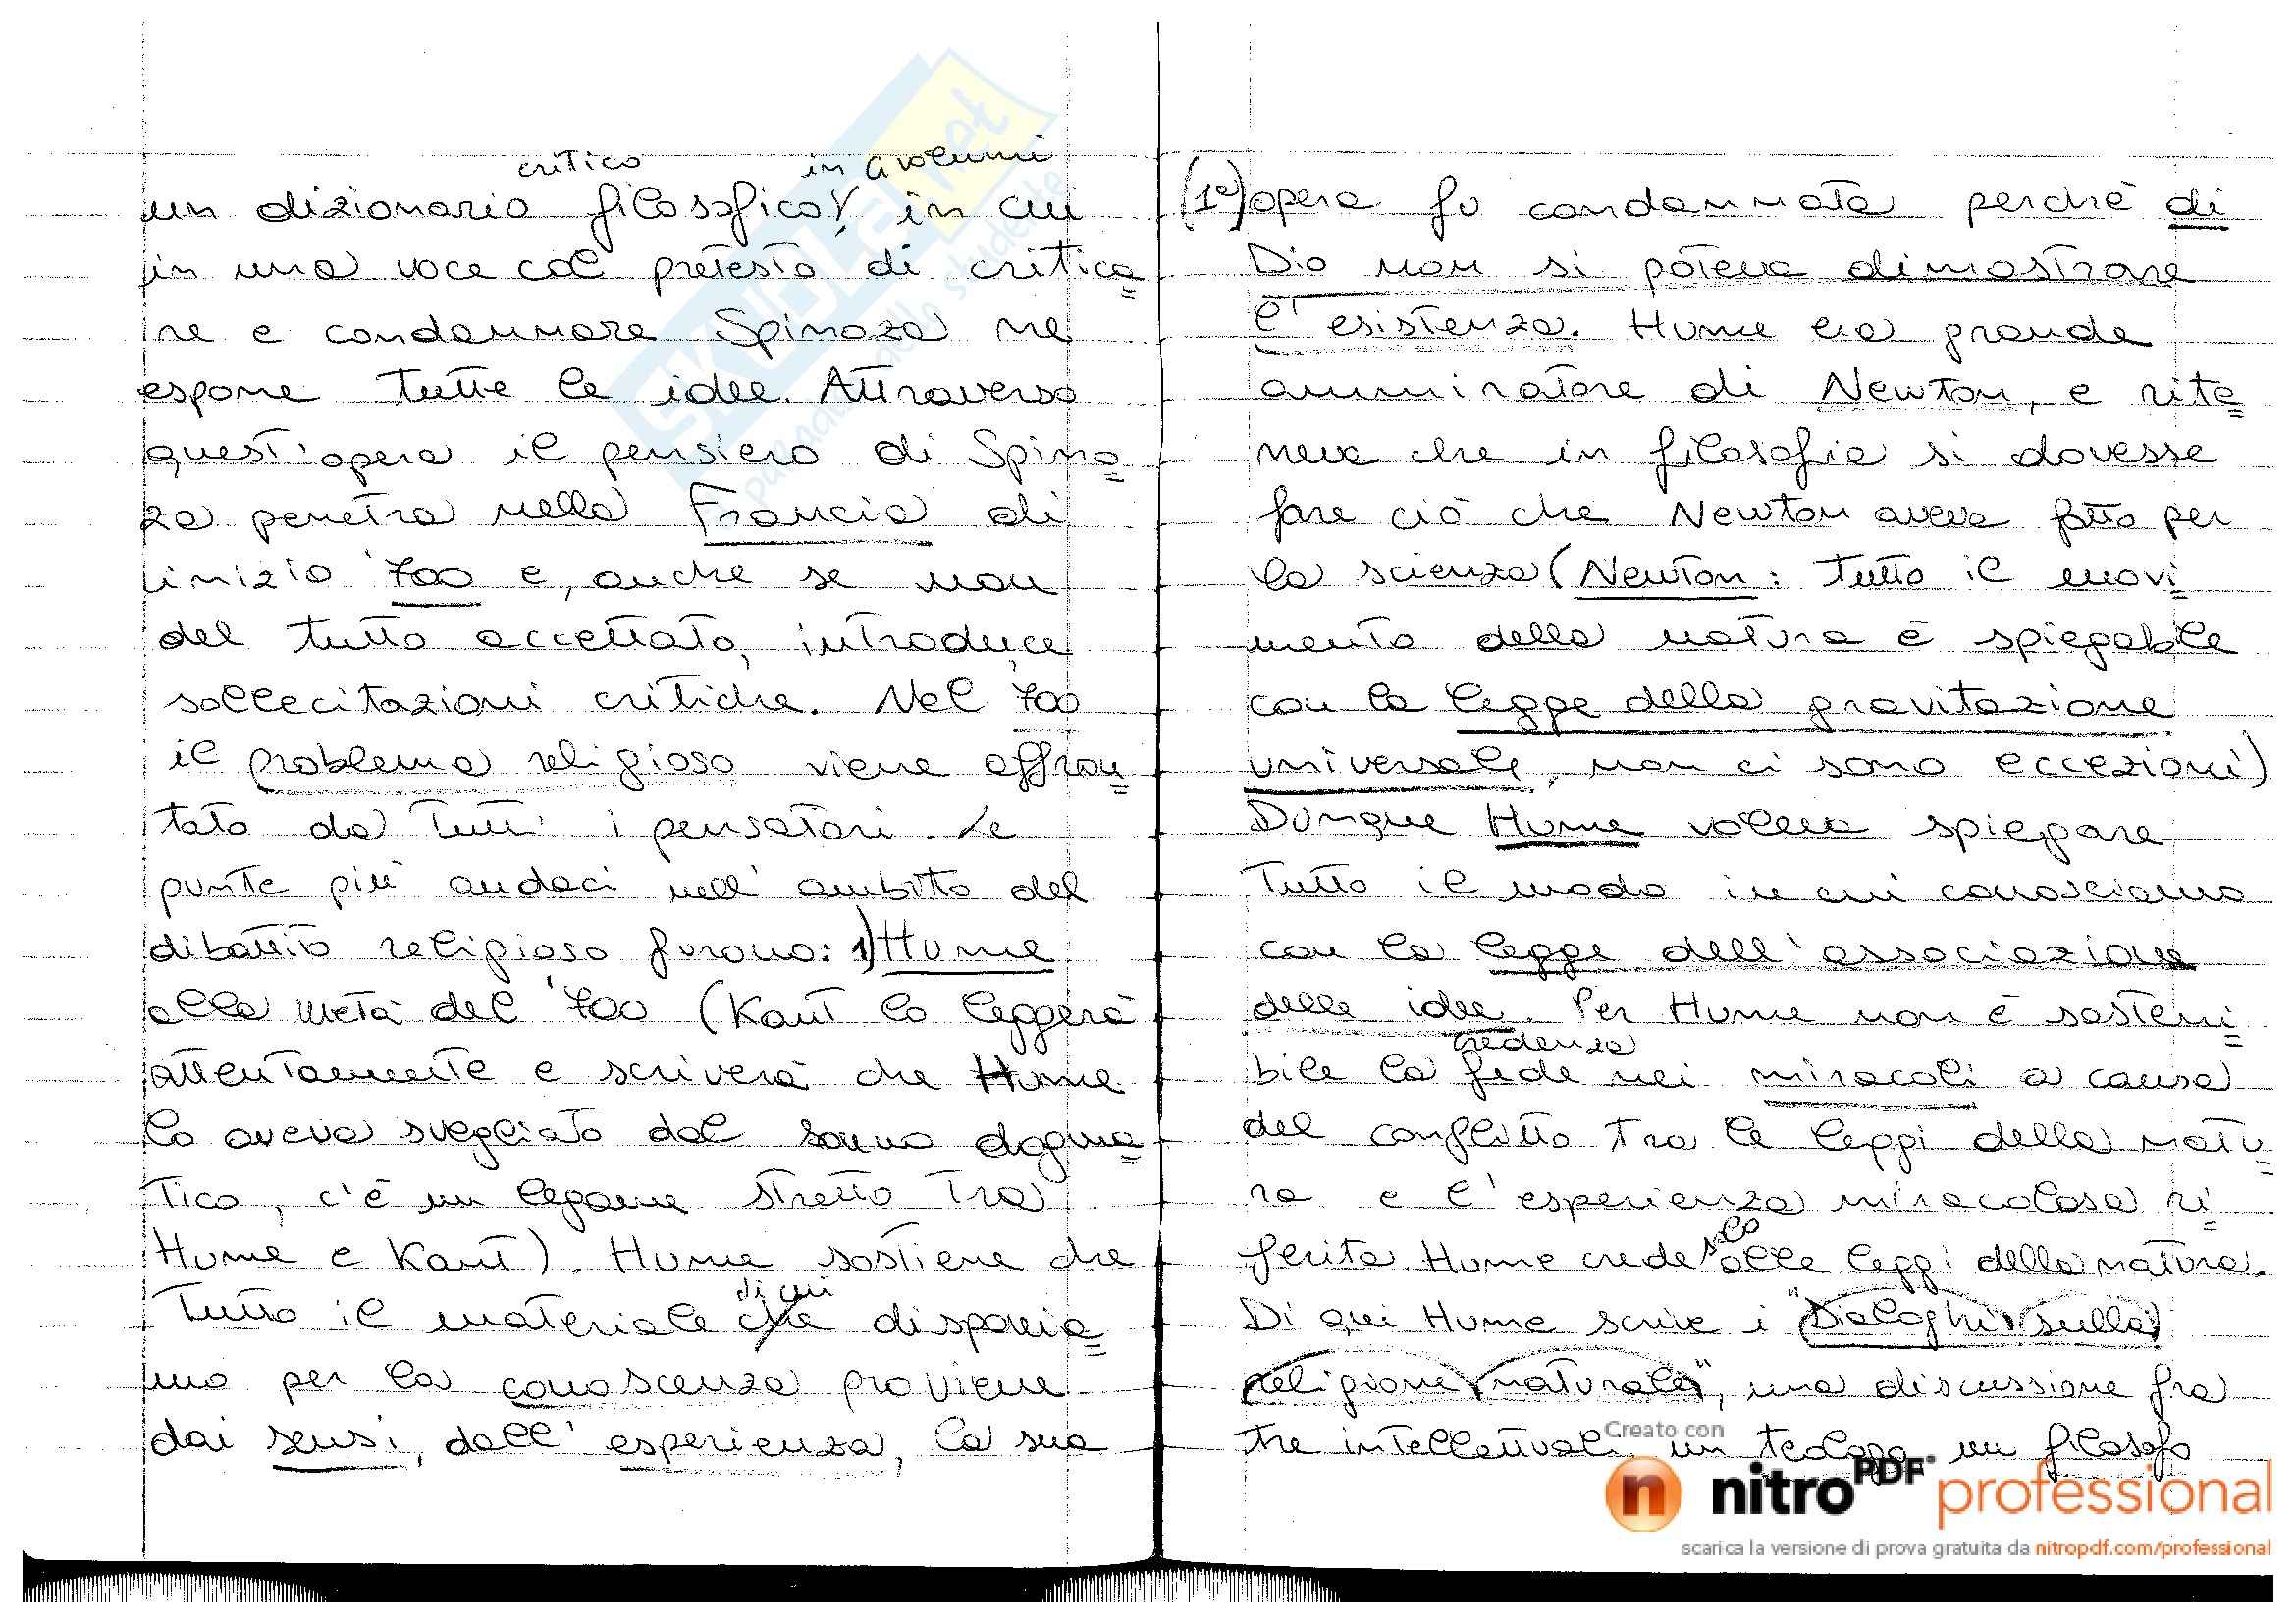 critico in 4 volumi
un dizionario filosofico, in cui
in una voce col pretesto di critica
re e condannare Spinoza ne
espone tutte le idee. Attraverso
quest'opera il pensiero di Spino
za penetra nella Francia di
inizio '700 e, anche se non
del tutto accettato, introduce
sollecitazioni critiche. Nel '700
il problema religioso viene affron
tato da tutti i pensatori. Le
punte più audaci nell'ambito del
dibattito religioso furono: 1) Hume
alla metà del '700 (Kant lo leggerà
attentamente e scriverà che Hume
lo aveva svegliato dal sonno dogma
tico, c'è un legame stretto tra
Hume e Kant). Hume sostiene che
di cui
tutto il materiale che disponia
mo per la conoscenza proviene
dai sensi, dall'esperienza, la sua
(1ª) opera fu condannata perchè di
Dio non si poteva dimostrare
l'esistenza. Hume era grande
ammiratore di Newton, e rite
neva che in filosofia si dovesse
fare ciò che Newton aveva fatto per
la scienza (Newton: tutto il movi
mento della natura è spiegabile
con la legge della gravitazione
universale, non ci sono eccezioni)
Dunque Hume voleva spiegare
tutto il modo in cui conosciamo
con la legge dell'associazione
delle idee. Per Hume non è sosteni
credenza
bile la fede nei miracoli a causa
del conflitto tra le leggi della natu
ra e l'esperienza miracolosa ri
ferita. Hume crede solo alle leggi della natura.
Di qui Hume scrive i "Dialoghi sulla
religione naturale", una discussione fra
tre intellettuali un teologo un filosofo
skuola.net
paradiso dello studente
Creato con
nitro PDF professional
scarica la versione di prova gratuita da nitropdf.com/professional